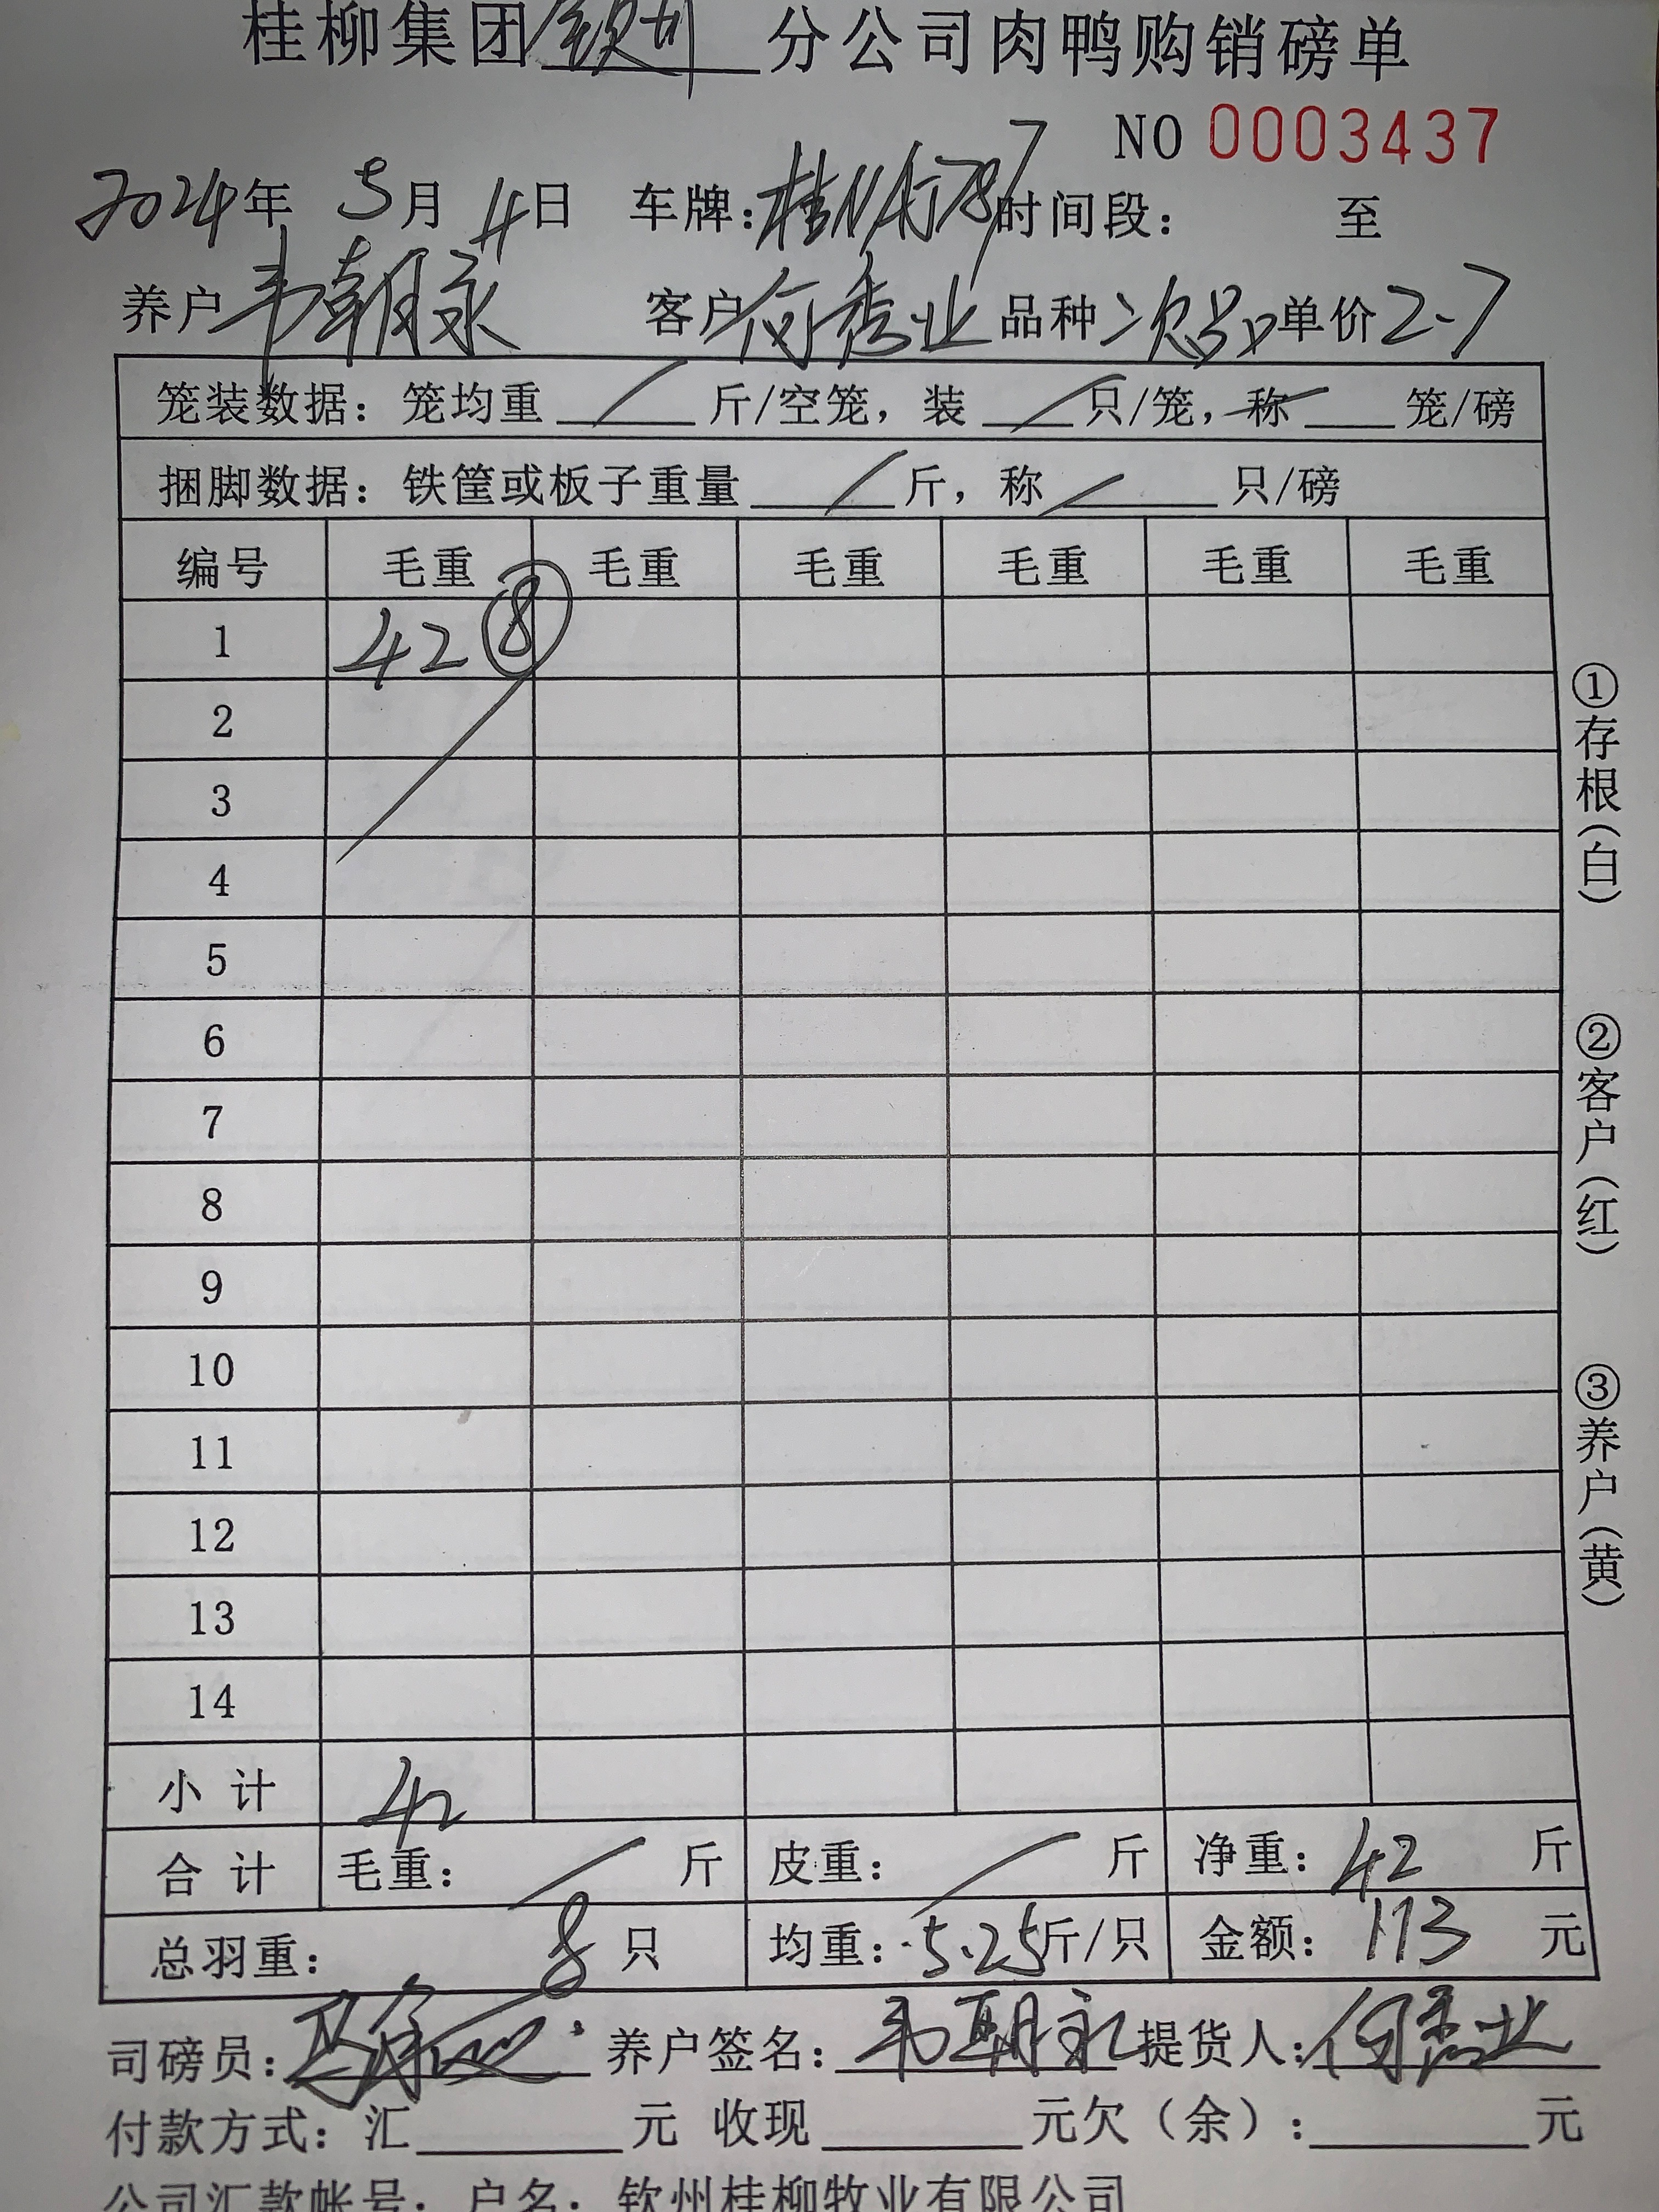 桂柳集团钦州分公司肉鸭购销磅单
NO 0003437
2024年 5月 4日 车牌: 时间段: 至
养户韦朝永 客户何秀业 品种次品 单价2.7
笼装数据: 笼均重 / 斤/空笼, 装 / 只/笼, 称 笼/磅
捆脚数据: 铁筐或板子重量 / 斤, 称 / 只/磅
编号 毛重 毛重 毛重 毛重 毛重 毛重
1 42 ⑧
2
3
4
5
6
7
8
9
10
11
12
13
14
小 计 42
合 计 毛重: / 斤 皮重: / 斤 净重: 42 斤
总羽重: 8 只 均重: 5.25斤/只 金额: 113 元
司磅员: 养户签名: 韦朝永 提货人: 何秀业
付款方式: 汇 元 收现 元欠(余): 元
公司汇款帐号: 户名: 钦州桂柳牧业有限公司
①存根(白)
②客户(红)
③养户(黄)